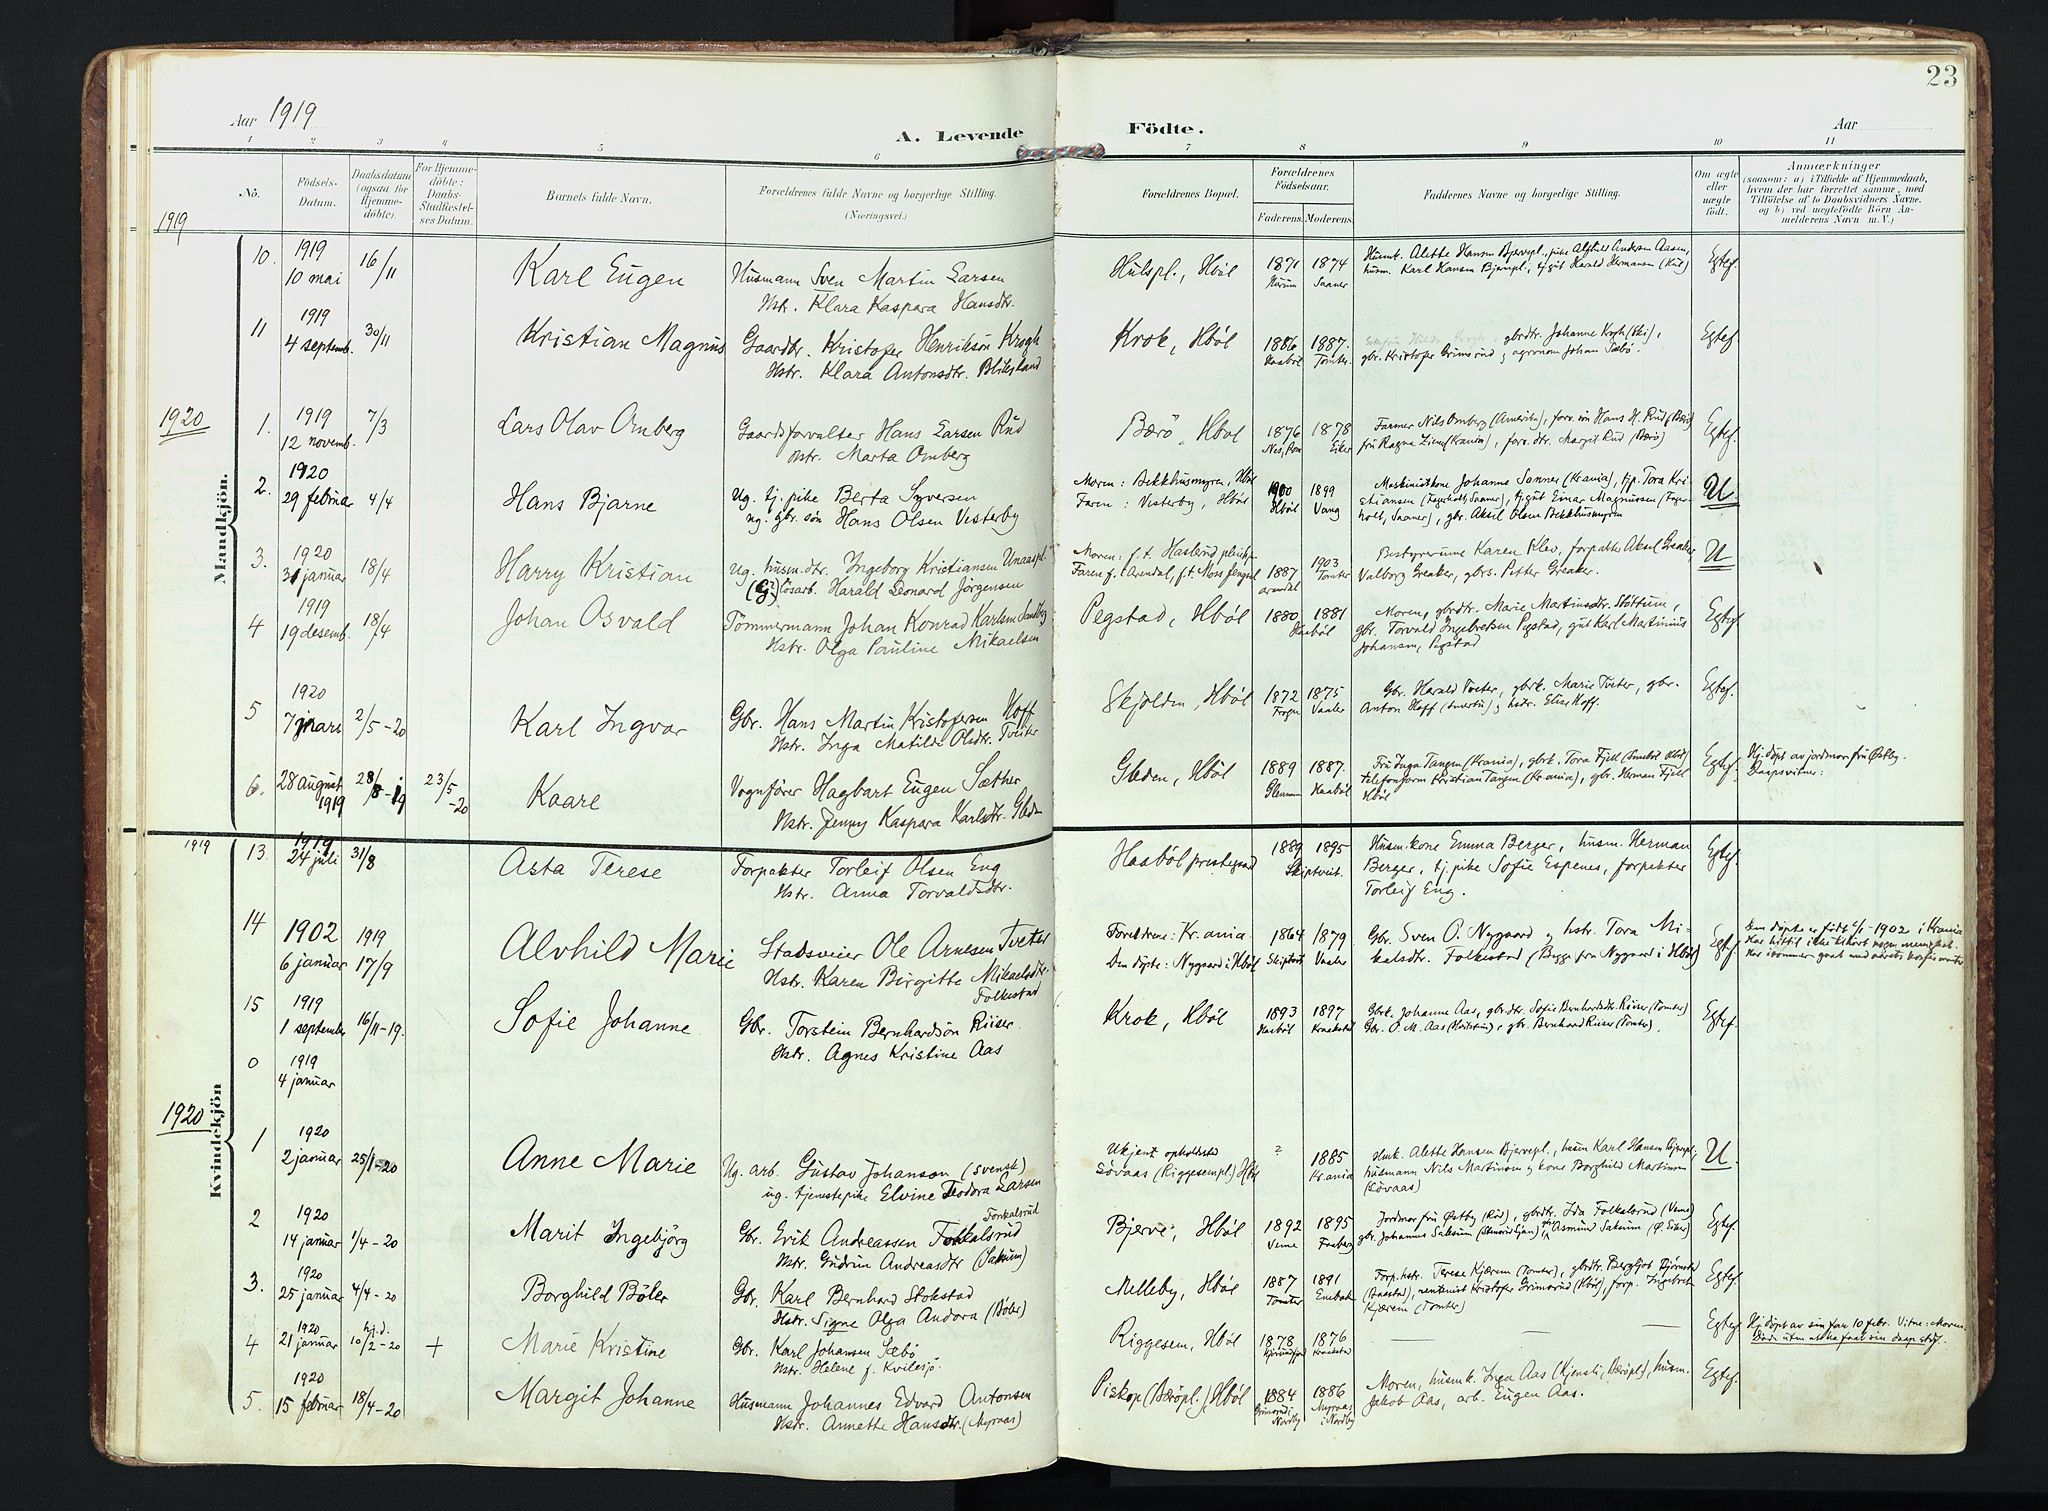 23
Aar 1919
A. Levende Födte.
Aar
1 2 3 4 5 6 7 8 9 10 11
No.
Födsels-Datum.
Daabsdatum (ogsaa for Hjemmedöbte).
For Hjemmedöbte: Daabs-Stadfæstelses Datum.
Barnets fulde Navn.
Forældrenes fulde Navne og borgerlige Stilling. (Næringsvei.)
Forældrenes Bopæl.
Forældrenes Födselsaar.
Faderens. Moderens.
Faddernes Navne og borgerlige Stilling.
Om ægte eller uægte födt.
Anmærkninger
(saasom: a) i Tilfælde af Hjemmedaab,
hvem der har forrettet samme, med
Tilföielse af to Daabsvidners Navne.
og b) ved uægtefödte Börn Anmelderens Navn m. V.)
1919
Mandkjön.
10. 1919 10 mai 16/11 Karl Eugen
Husmann Sven Martin Larsen
Hstr. Klara Kaspara Hansdtr.
Hulspl., Hböl 1871 1874 Saaner
Husmk. Alette Hansen Bjervepl., pike Alfhild Andersen Aasen,
husm. Karl Hansen Bjervepl., tj.gut Harald Hermansen (Hul)
Egtef.
11 1919 4 septemb. 30/11 Kristian Magnus
Gaardbr. Kristofer Henriksön Krogh
Hstr. Klara Antonsdtr. Bliksland
Krok, Hböl 1886 Haaböl 1887. Tomter.
gbrdtr. Johanne Krogh (Ski),
gbr. Kristofer Grimsrud, agronom Johan Sæbö.
Egtef.
1920
1. 1919 12 novemb. 7/3 Lars Olav Omberg
Gaardsforvalter Hans Larsen Rud
Hstr. Marta Omberg
Bærö, Hböl 1876 Nes, Rom 1878 Eiker
Farmer Nils Omberg (Amerika), forv. sön Hans H. Rud (Bærö)
fru Ragna Ziem (Krania), forv. dtr. Margit Rud (Bærö)
Egtef.
2. 1920 29 februar 4/4 Hans Bjarne
Ug. tj. pike Berta Syversen
ug. gbr. sön Hans Olsen Vesterby
Moren: Bekkhusmyren, Hböl
Faren: Vesterby, Hböl
1900 Hböl 1899 Vang
Maskinistkone Johanne Sanner (Krania), tjp. Tora Kristiansen
(Fagerholt, Saaner), tj.gut Einar Magnussen (Fagerholt,
Saaner), gbr. Aksel Olsen Bekkhusmyren
U.
3. 1920 31 januar 18/4 Harry Kristian
Ug. husm.dtr. Ingeborg Kristiansen Unaaspl.
(G.) lösarb. Harald Leonard Jörgensen
Moren: f. t. Haslerud
Faren f. Arendal, f.t. Moss fengsel
1887 Arendal 1903 Tomter
Bestyrerinne Karen Klev, forpakter Aksel Greaker,
Valborg Greaker, gbrs. Petter Greaker.
U
4 1919 19 desemb. 18/4 Johan Osvald
Tömmermann Johan Konrad Karlsen
Hstr. Olga Pauline Mikaelsen
Pegstad, Hböl 1880 1881 Haaböl
Moren, gbrdtr. Marie Martinsdtr. Støttum,
gbr. Torvald Ingebretsen Pegstad, gut Karl Martinius
Johansen, Pegstad
Egtef.
5 1920 7 mars 2/5-20 Karl Ingvar
Gbr. Hans Martin Kristofersen Hoff
Hstr. Inga Matilde Olsdtr. Tveter
Skjolden, Hböl 1872 Frogn 1875 Vaaler
Gbr. Harald Tveter, gbrk. Marie Tveter, gbr.
Anton Hoff, hsdr. Elise Hoff.
Egtef.
6. 28 august 1919 28/8-19 23/5-20 Kaare
Vognfører Hagbart Eugen Sæther
Hstr. Jenny Kaspara Karlsdtr. Gleden
Gleden, Hböl 1889 Glemmen 1887. Haaböl
Fru Inga Tangen (Krania), gbrk. Tora Fjell
telefonform Kristian Tangen (Krania), gbr. Herman Fjell
Hböl
Egtef.
Hj.döpt av jordmor fru Østby.
Daapsvitner:
Kvindekjön
1919
13. 1919 24 juli 31/8 Asta Terese
Forpakter Torleif Olsen Eng
Hstr. Anna Torvaldsdtr.
Haaböl prestegaard 1889 1895 Skiptveit.
Husm.kone Emma Berger, husm. Herman
Berger, tj.pike Sofie Espenes, forpakter
Torleif Eng.
Egtef.
14 1902 6 januar 1919 17/9 Alvhild Marie
Stadsveier Ole Arnesen Tveter
Hstr. Karen Birgitte Mikaelsdtr. Folkestad
Foreldrene: Kr.ania.
Den döpte: Nygaard i Hböl
1864 Skiptvet 1879 Vaaler
Gbr. Sven O. Nygaard og hstr. Tora Mikalsdtr.
Folkestad (Begge fra Nygaard i Hböl)
Egtef.
Den döpte er födt 6/1-1902 i Krania
15 1919 1 september 16/11-19. Sofie Johanne
Gbr. Torstein Bernhardsön Riiser.
Hstr. Agnes Kristine Aas
Krok, Hböl 1893 Haaböl 1897 Kraakstad
Gbrk. Johanne Aas, gbrdtr. Sofie Bernhardsdtr Riiser (Tomter)
Gbr. O. M. Aas, gbr. Bernhard Riiser (Tomter).
Egtef.
0 1919 4 januar
1920
1 1920 2 januar 25/1-20 Anne Marie
Ug. arb. Gustav Johanson (svensk)
ug. tjenestepike Elvine Teodora Larsen
Ukjent opholdssted
Lövaas (Riggesempl.) Hböl
? 1885 Kr.ania
Husk. Alette Hansen Bjervepl., husm Karl Hansen Bjervepl.,
husmann Nils Martinsen og kone Borghild Martinsen
(Lövaas)
U.
2 1920 14 januar 1/4-20 Marit Ingebjörg
Gbr. Erik Andreassen Folkalsrud
Forkalsrud
Hstr. Gudrun Andreasdtr (Saksum)
Bjerve, Hböl 1892 Veme 1895 Faaberg
Jordmor fru Østby (Rød), gbrdtr. Ida Folkalsrud (Veme)
gbr. Johannes Saksum, Asmund Saksum (Ø. Eiker)
Egtef.
3. 1920 25 januar 4/4-20 Borghild Böler
Gbr. Karl Bernhard Stokstad
Hstr. Signe Olga Andora (Böler)
Melleby, Hböl 1887 Tomter 1891 Enebak
Forp.hstr. Terese Kjærem (Tomter), gbrdtr Bergljot Bjørnstad
(Baastad), rentenist Kristofer Grimsrud (Hböl), forp. Ingebret
Kjærem (Tomter)
Egtef.
4 1920 21 januar hj.d. 10/2-20 + Marie Kristine
Gbr. Karl Johansen Sæbö
Hstr. Helene f. Kvilesjö.
Riggesem, Hböl 1878 1876 Kraakstad
— — — —
Egtef.
Hj.döpt av sin far 10 febr. Vitne: Moren.
5. 1920 15 februar 18/4-20 Margit Johanne
Husmann Johannes Edvard Antonsen
Hstr. Annette Hansdtr. (Myraas)
Piskop (Bærøpl.), Hböl 1884 Grimsrud i Nordby 1886 Myraas i Nordby
Moren, husmk. Inga Aas, husm.
Jakob Aas, arb. Eugen Aas.
Egtef.